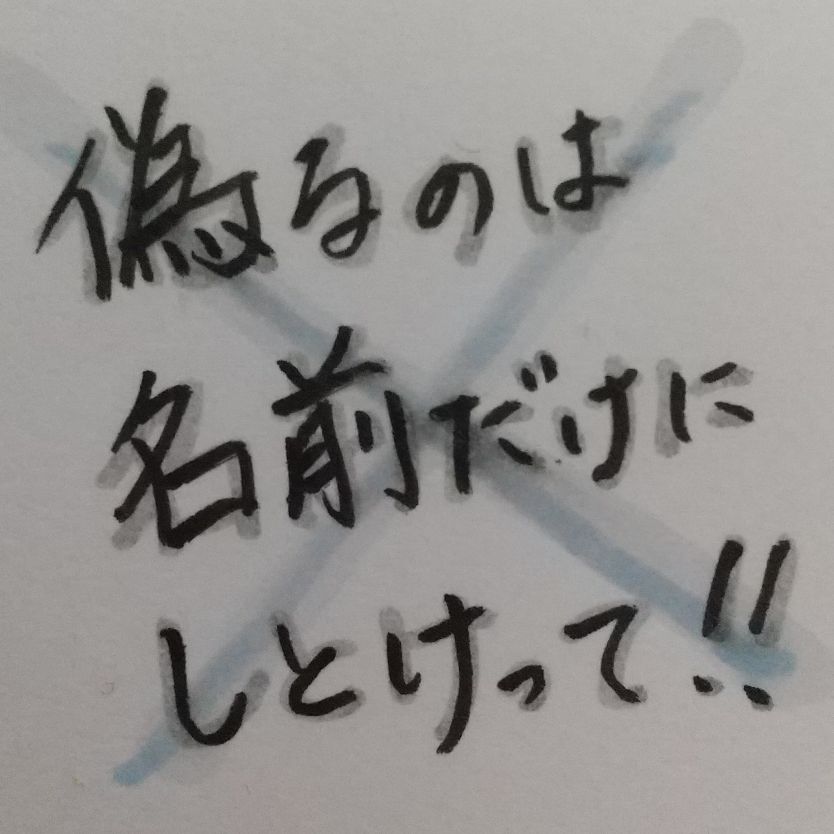 偽るのは
名前だけに
しとけって!!